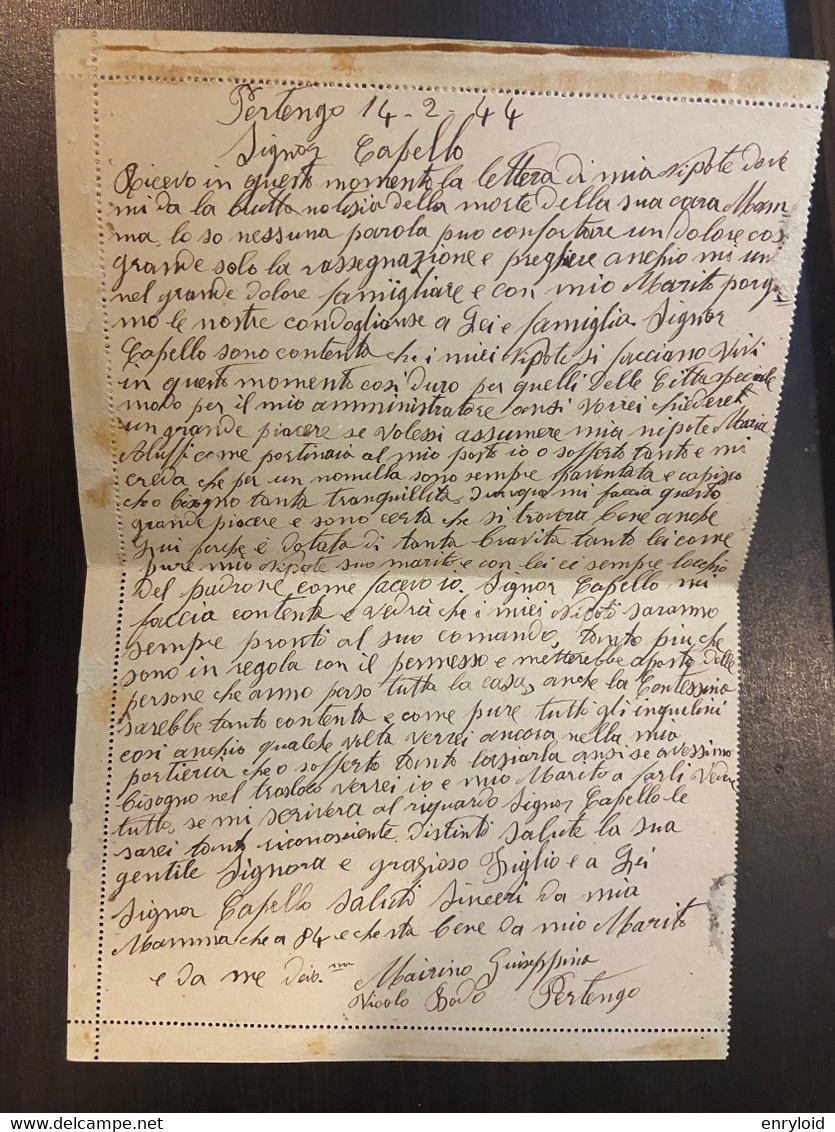 Pertengo 14-2-44
Signor Capello
Ricevo in questo momento la lettera di mia Nipote dove
mi da la brutta notisia della morte della sua cara Mam
ma, lo so nessuna parola puo confortare un dolore cosi
grande solo la rassegnazione e preghiere anchio mi un
nel grande dolore famigliare e con mio Marito porgia
mo le nostre condoglianse a Lei e famiglia. Signor
Capello sono contenta che i miei Nipote si facciano Vivi
in questo momento cosi duro per quelli delle Citta speciale
modo per il mio amministratore ansi Vorrei chiedere
un grande piacere se volessi assumere mia nipote Maria
Aluffi come portinaia al mio posto io o sofferto tanto e mi
creda che per un nonulla sono sempre spaventata e capisco
che o bisogno tanta tranquillita, dunque mi faccia questo
grande piacere e sono certa che si trovera bene anche
Lui perche è dotata di tanta bravita tanto lei come
pure mio Nipote suo marito e con lei ce sempre locchio
del padrone come facevo io. Signor Capello mi
faccia contenta e vedrà che i miei Nipoti saranno
sempre pronti al suo comando, tanto piu che
sono in regola con il permesso e metterebbe aposto delle
persone che anno perso tutta la casa, anche la Contessina
sarebbe tanto contenta e come pure tutti gli inquilini
cosi anchio qualche volta verrei ancora nella mia
portieria che o sofferto tanto lasiarla ansi se avessimo
bisogno nel trasloco verrei io e mio Marito a farli Vedere
tutto, se mi scrivera al riguardo Signor Capello le
sarei tanto riconosciente. Distinti salute la sua
gentile Signora e grazioso Figlio e a Lei
Signor Capello saluti Sinceri da mia
Mamma che a 84 e che sta bene da mio Marito
e da me dev.ma Mairino Giuseppina
Vicolo Bodo Pertengo
enryloid
delcampe.net